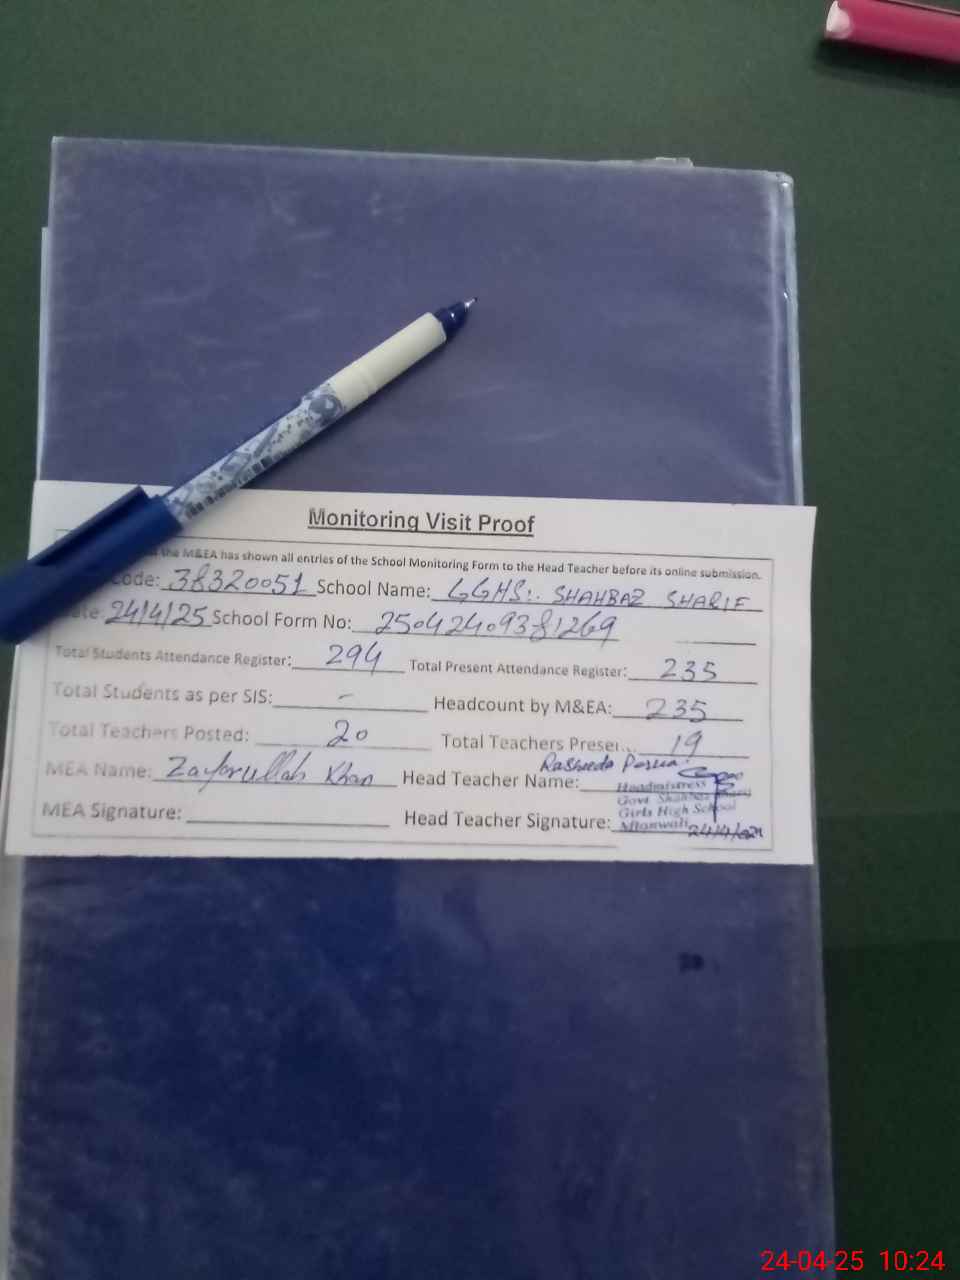 Monitoring Visit Proof
the M&EA has shown all entries of the School Monitoring Form to the Head Teacher before its online submission.
Code: 38320051 School Name: GGHS:. SHAHBAZ SHARIF
Date 24/4/25 School Form No: 25042409381269
Total Students Attendance Register: 294 Total Present Attendance Register: 235
Total Students as per SIS: - Headcount by M&EA: 235
Total Teachers Posted: 20 Total Teachers Present: 19
MEA Name: Zafarullah Khan Head Teacher Name: Rasheeda
Headmistress
Govt. Shahbaz
Girls High School
Mianwali
MEA Signature: Head Teacher Signature:
24-04-25 10:24